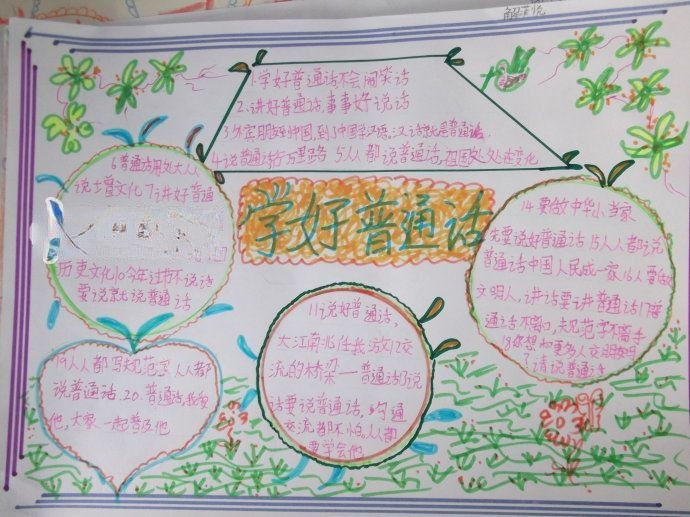 解
1.学好普通话不会闹笑话
2.讲好普通话,事事好说话
3.外宾朋友到中国,到了中国学汉语,汉语就是普通话.
4.说普通话行万里路 5人人都说普通话,祖国处处在变化
6普通话用处大人人
说 增文化7讲好普通
历史文化10今年过节不说话
要说就说普通话
学好普通话
14.要做中华小当家
先要说好普通话15人人都说
普通话中国人民成一家16人要做
文明人,讲话要讲普通话17普
通话不离口,规范字不离手
18你想和更多人交朋友吗
?请说普通话
11说好普通话,
大江南北任我放12交
流的桥梁一普通话13说
话要说普通话,沟通
交流都不怕,人人都
要学会他
19人人都写规范字 人人都
说普通话.20.普通话,我
他,大家一起普及他